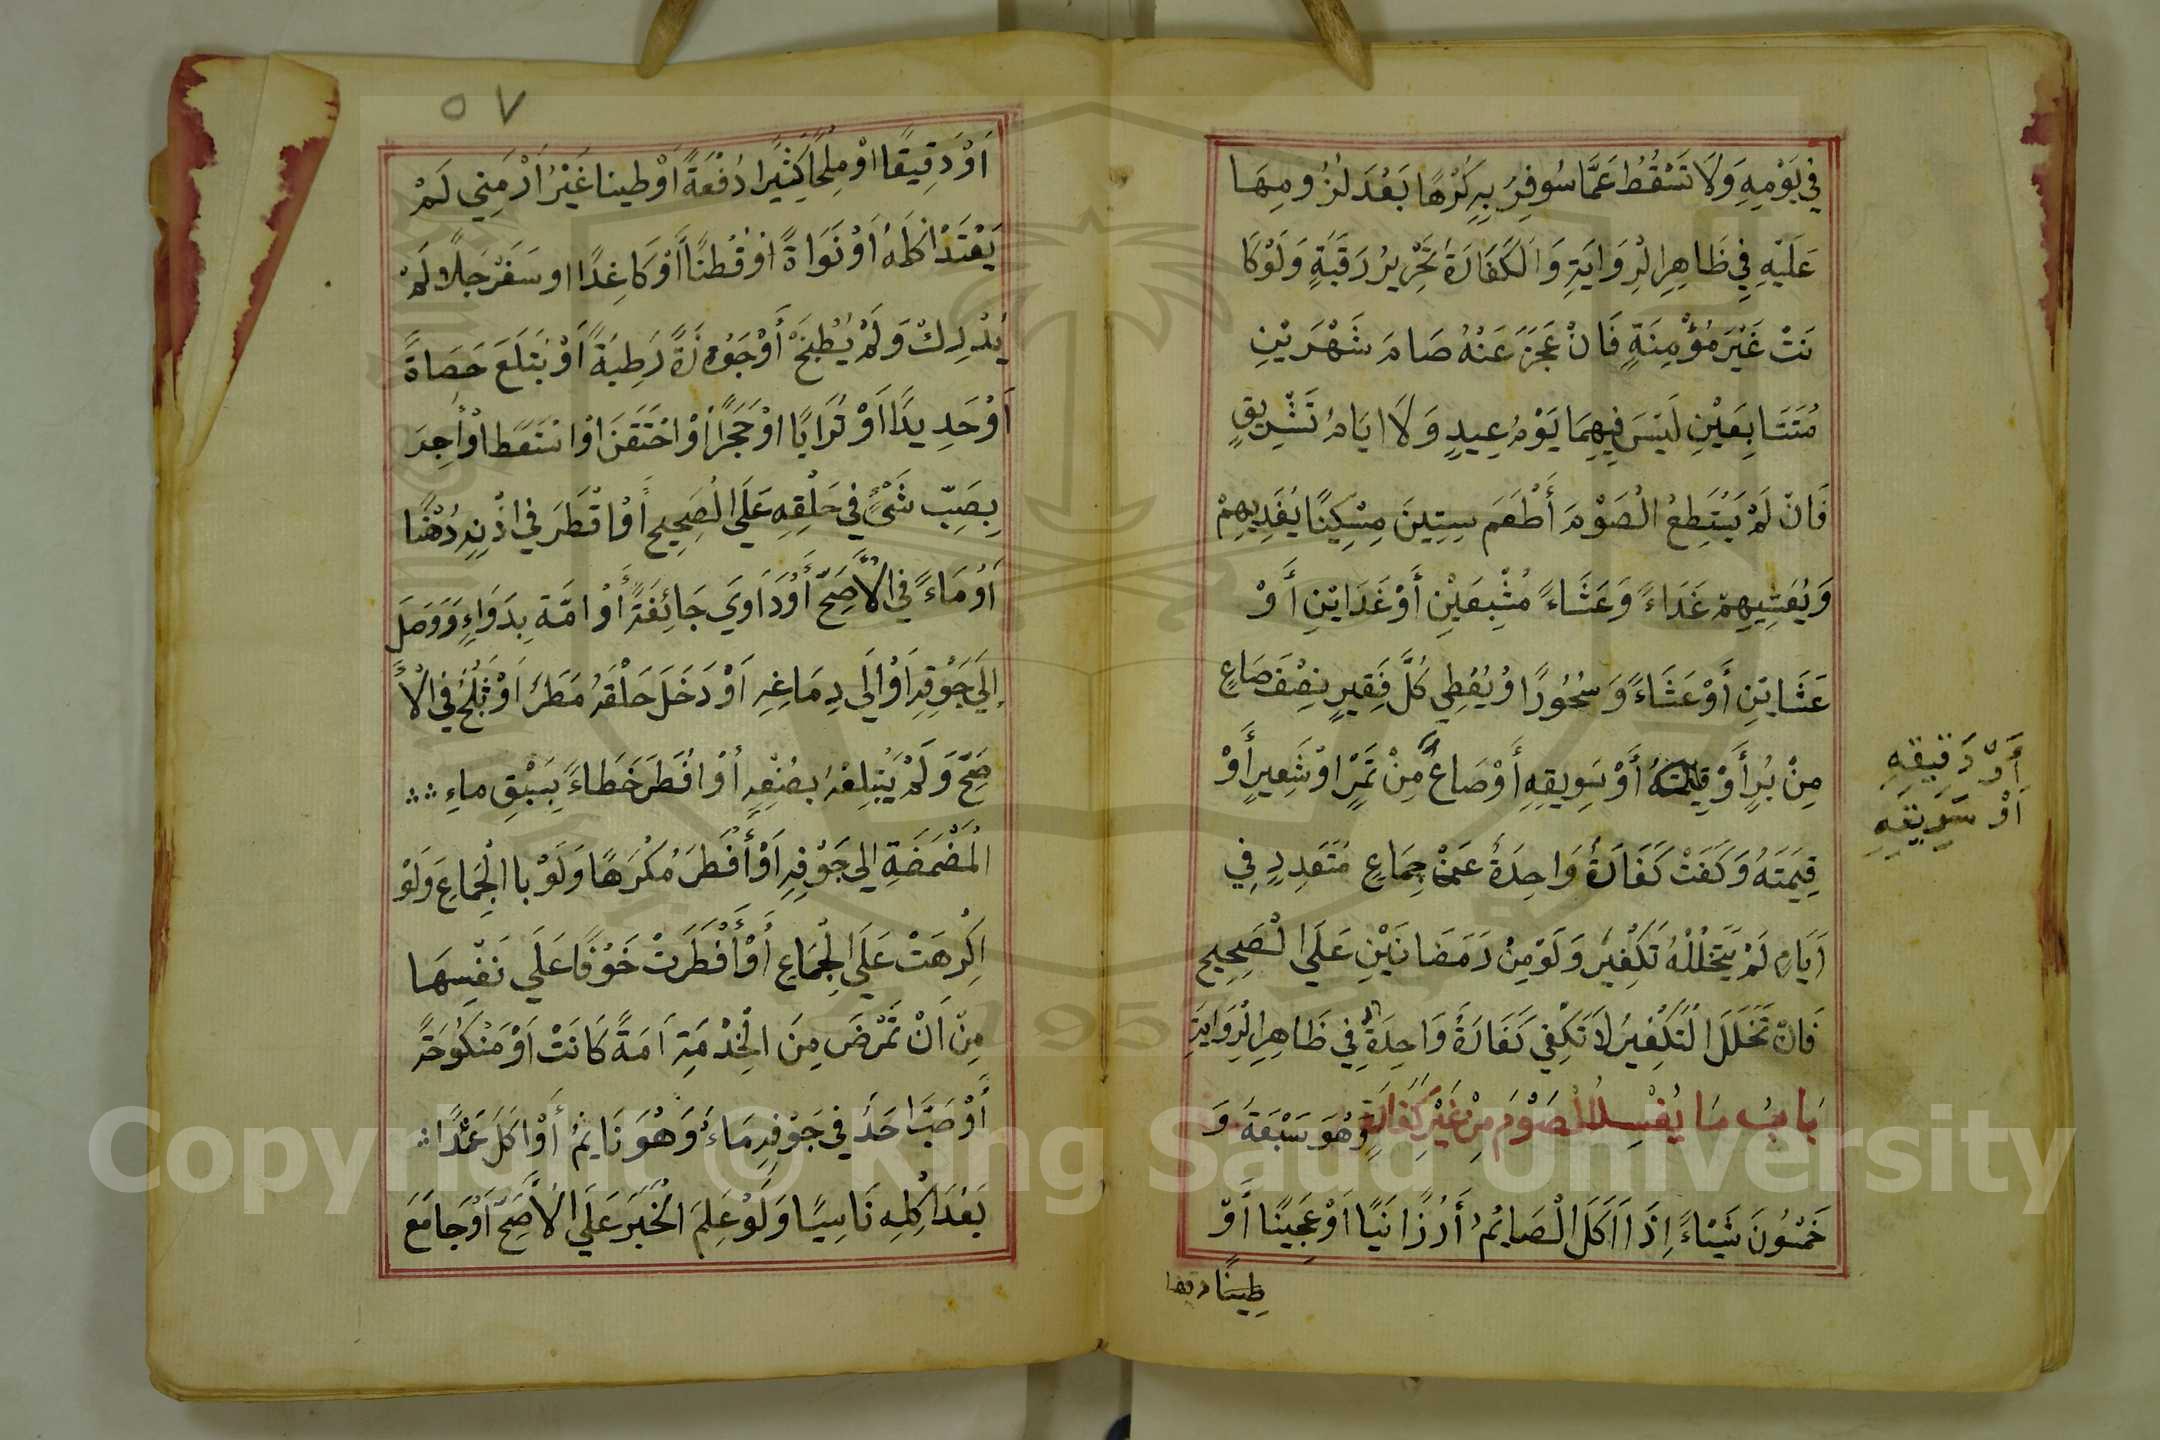 فِي يَوْمِهِ وَلَا تَسْقُطُ عَمَّا سُوفِرُ بِهِ كُرْهًا بَعْدَ لُزُومِهَا
عَلَيْهِ فِي ظَاهِرِ الرِّوَايَةِ وَالْكَفَّارَةُ تَحْرِيرُ رَقَبَةٍ وَلَوْ كَا
نَتْ غَيْرَ مُؤْمِنَةٍ فَانْ عَجَزَ عَنْهُ صَامَ شَهْرَيْنِ
مُتَتَابِعَيْنِ لَيْسَ فِيهِمَا يَوْمُ عِيدٍ وَلَا ايَامُ تَشْرِيقٍ
فَانْ لَمْ يَسْتَطِعْ الْصَوْمَ أَطْعَمَ سِتِينَ مِسْكِينًا يُغَدِيهِمْ
وَيُعَشِيهِمْ غَدَاءً وَعَشَاءً مُشْبِعَيْنِ أَوْ غَدَايْنِ أَوْ
عَشَايْنِ أَوْ عَشَاءً وَسُحُورًا وْ يُعْطِي كُلَّ فَقِيرٍ نِصْفَ صَاعٍ
مِنْ بُرٍ أَوْ قِيمَتَهُ أَوْ سَوِيقِهِ أَوْ صَاعُ مِنْ تَمْرٍ اوْ شَعِيرٍ أَوْ
أَوْ دَقِيقِهِ
اوْ سَوِيقِهِ
قِيمَتَهُ وَكَفَتْ كَفَارَةُ وَاحِدَةُ عَنْ جِمَاعٍ مُتَعَدِدٍ فِي
اَيَامٍ لَمْ يَتَخَلَلْهُ تَكْفِيرُ وَلَوْ مِنْ رَمَضَانَيْنِ عَلَى الْصَحِيحِ
فَانْ تَخَلَلَ الْتَكْفِيرُ لَا تَكْفِي كَفَارَةُ وَاحِدَةُ فِي ظَاهِرِ الْرِوَايَةِ
بَابُ مَا يُفْسِدُ الْصَوْمَ مِنْ غَيْرِ كَفَارَةٍ وَهُوَ سَبْعَةُ وَ
خَمْسُونَ شَيْئاءً اِذَا اَكَلَ الْصَايِمُ أَرُزًا نَيًا اَوْ عَجِينًا أَوْ
طِينًا
٥٧
اَوْ دَقِيقًا اوْ مِلْحًا كَثِيرًا دُفْعَةً اَوْ طِينا غَيْرُ اَرْمَنِي لَمْ
يَعْتَدْ اكْلَهُ اَوْ نَوَاةً اوْ قُطْنًا اَوْ كَاغِدًا او سَفَرْجَلًا لَمْ
يُدْرِكْ وَلَمْ يُطْبَخْ أَوْ جَوْزَةً رَطِبَةً اَوْ بْتَلَعَ حَصَاةً
اَوْ حَدِيدًا اَوْ تُرَابًا اوْ حَجَرًا اوْ احْتَقَنَ اوْ اسْتَعَطَ اوْ اُجِرَ
بِصَبِّ شَيْءٍ فِي حَلْقِهِ عَلَى الْصَحِيحِ اَوْ اقْطَرَ فِي اذْنِهِ دُهْنًا
اَوْ مَاءً فِي الْأَصَحِّ أَوْ دَاوَي جَائِفَةً أَوْ امَّة بِدَوَاءٍ وَوَصَلَ
إِلَي جَوْفِهِ اَوْ اِلَي دِمَاغِهِ اَوْ دَخَلَ حَلْقَهُ مَطَرُ اَوْ ثَلْجُ فِي الْاَ
صَحِّ وَلَمْ يَبْتَلِعْهُ بِصُنْعِهِ اُوْ افْطَرَ خَطَاءً بِسَبْقِ ماءِ
الْمَضْمَضَةِ الي جَوْفِهِ اَوْ أَفْطَرَ مُكْرَهًا وَلَوْ با الْجِمَاعِ وَلَوْ
اكْرِهَتْ عَلَي الْجِمَاعِ اَوْ أَفْطَرَتْ خَوْفًا عَلَي نَفْسِهَا
مِنْ اَنْ تَمْرَضَ مِنَ الْخِدْمَةِ اَمَةً كَانَتْ اَوْ مَنْكُوحَةً
أَوْ صَبَّ احَدُ فِي جَوْفِهِ مَاءً وَهُوَ نَايمُ أَوْ اكَلَ عَمْدًا
بَعْدَ اكْلِهِ نَاسِيًا وَلَوْ عَلِمَ الْخَبَرَ عَلَي الْأَصَحِّ اَوْ جَامَعَ
Copyright © King Saud University